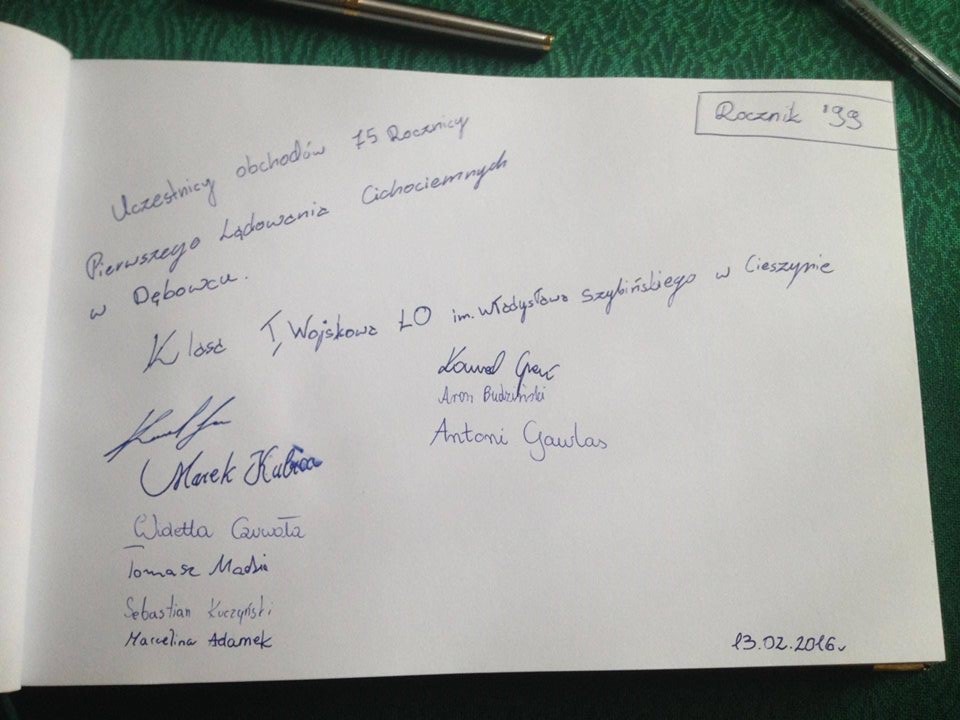 Rocznik '99
Uczestnicy obchodów 75 Rocznicy
Pierwszego Lądowania Cichociemnych
w Dębowcu.
Klasa I, Wojskowa LO im. Władysława Szybińskiego w Cieszynie
Kamil
Aron Budziński
Antoni Gawlas
Marek Kubica
Widetta
Tomasz Madzia
Sebastian Kuczyński
Marcelina Adamek
13.02.2016r